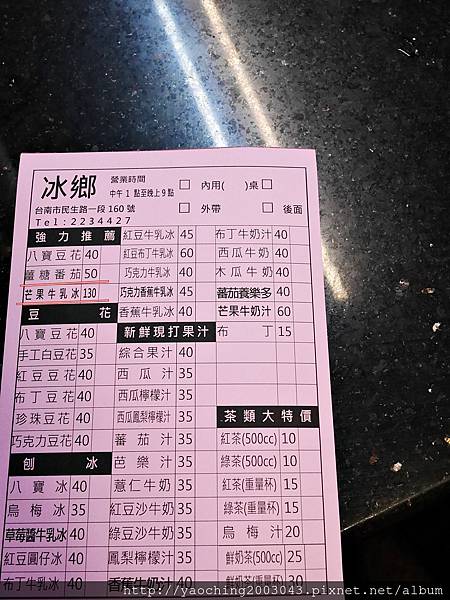 冰鄉
營業時間
中午 1 點至晚上 9 點
內用( )桌
外帶
後面
台南市民生路一段 160 號
Tel:2234427
強力推薦
八寶豆花 40
薑糖番茄 50
芒果牛乳冰 130
豆花
八寶豆花 40
手工白豆花 35
紅豆豆花 40
布丁豆花 40
珍珠豆花 40
巧克力豆花 40
刨冰
八寶冰 40
烏梅冰 35
草莓醬牛乳冰 40
紅豆圓仔冰 40
布丁牛乳冰 40
紅豆牛乳冰 45
紅豆布丁牛乳冰 60
巧克力牛乳冰 40
巧克力香蕉牛乳冰 45
香蕉牛乳冰 40
新鮮現打果汁
綜合果汁 40
西瓜汁 35
西瓜檸檬汁 40
西瓜鳳梨檸檬汁 40
蕃茄汁 35
芭樂汁 35
薏仁牛奶 35
紅豆沙牛奶 35
綠豆沙牛奶 35
鳳梨檸檬汁 35
香蕉牛奶汁 40
布丁牛奶汁 40
西瓜牛奶 40
木瓜牛奶 40
蕃茄養樂多 40
芒果牛奶汁 60
布丁 15
茶類大特價
紅茶(500cc) 10
綠茶(500cc) 10
紅茶(重量杯) 15
綠茶(重量杯) 15
烏梅汁 20
鮮奶茶(500cc) 25
鮮奶茶(重量杯) 30
http://yaoching2003043.pixnet.net/album